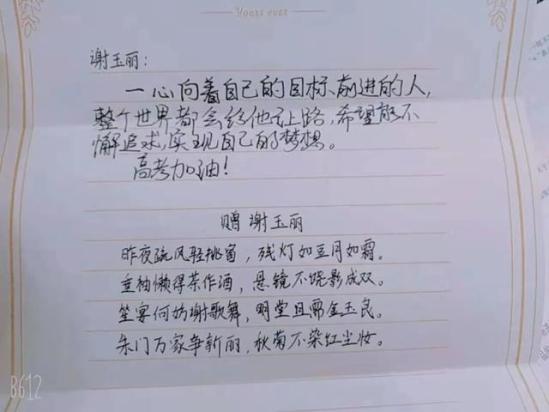 Yours ever
谢玉丽:
一心向着自己的目标前进的人,
整个世界都会给他让路,希望能不
懈追求,实现自己的梦想。
高考加油!
赠谢玉丽
昨夜疏风轻挑窗,残灯如豆月如霜。
垂袖懒得茶作酒,悬镜不烧影成双。
笙宴何妨谢歌舞,明堂且需金玉良。
朱门万家争新丽,秋菊不染红尘妆。
B612